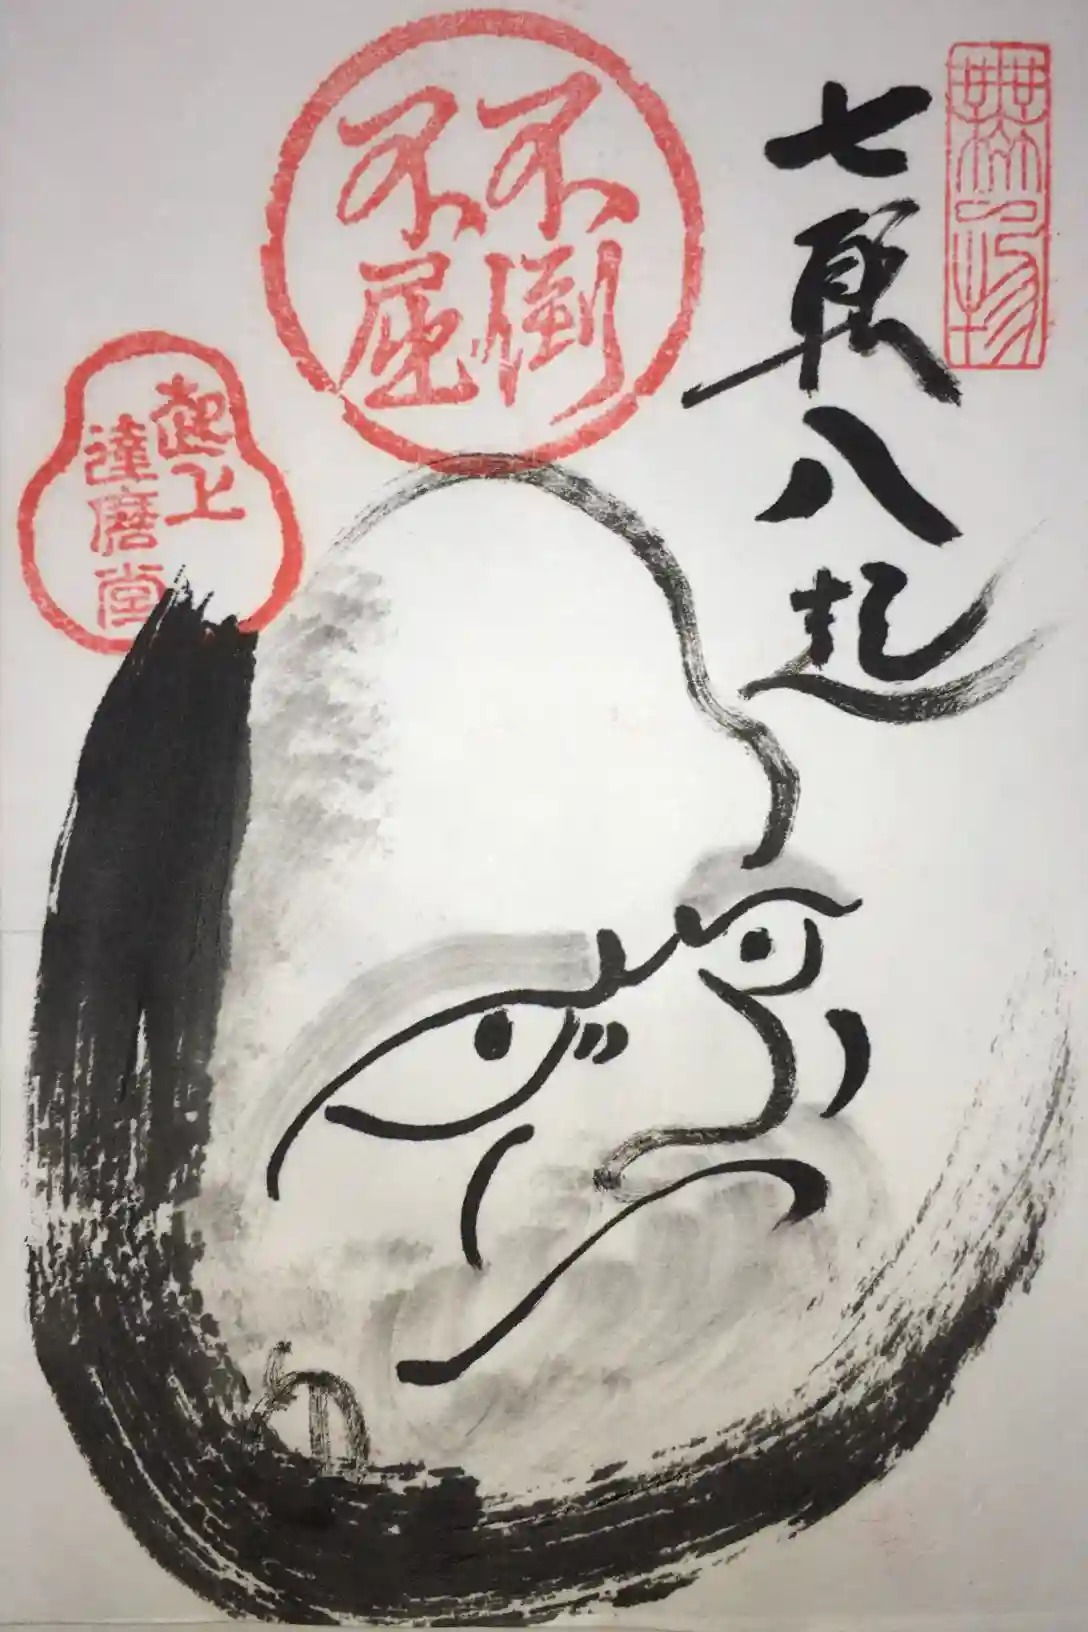 無一物
七転八起
不倒
不屈
起上
達磨堂